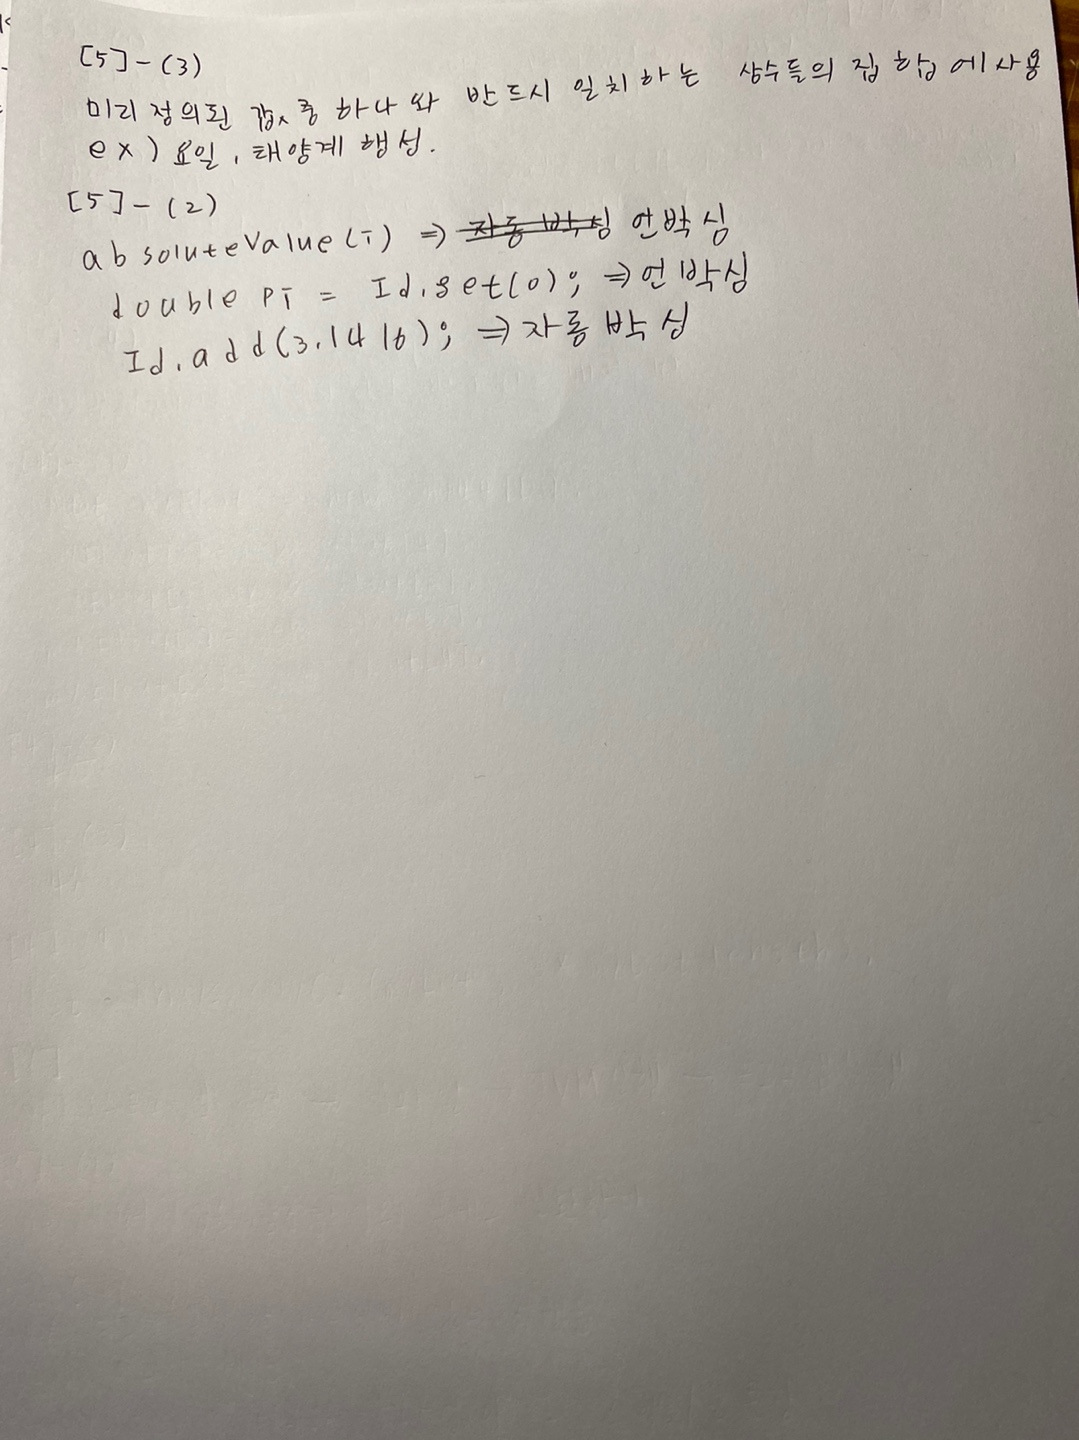 [5]-(3)
미리 정의된 값 중 하나와 반드시 일치하는 상수들의 집합에 사용
ex) 요일, 태양계 행성.
[5]-(2)
absoluteValue(i) ⇒ 자동 박싱 언박싱
double pi = Id.get(0); ⇒ 언박싱
Id.add(3.1416); ⇒ 자동 박싱